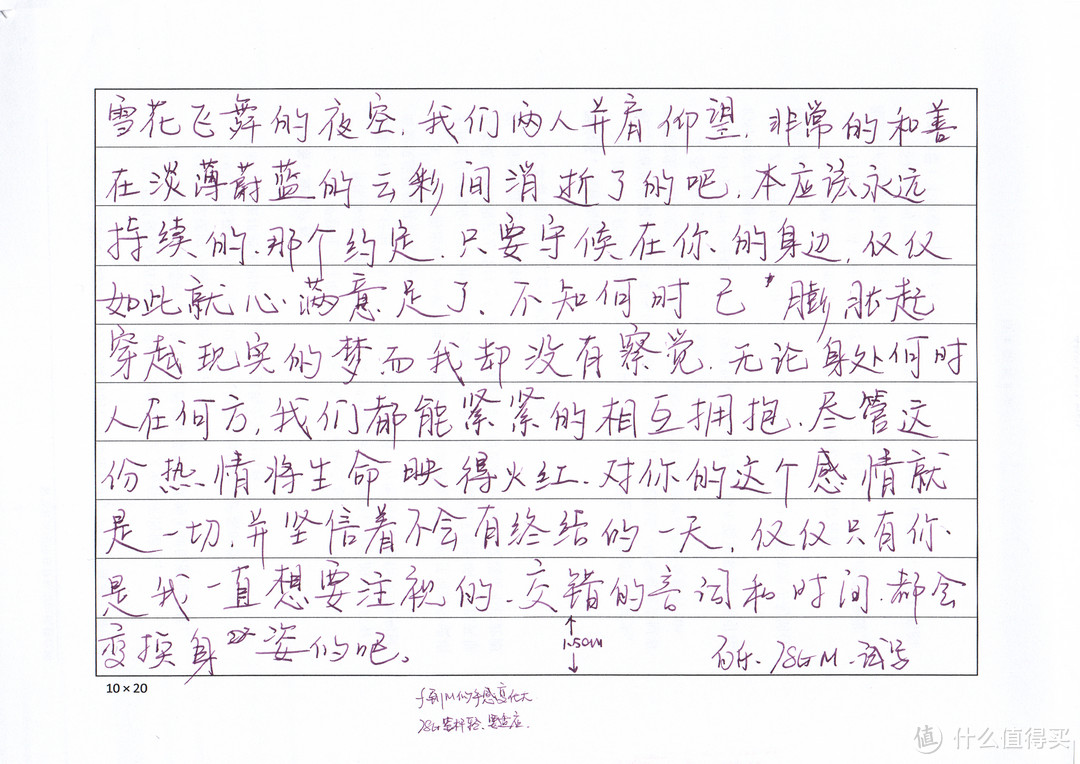 雪花飞舞的夜空，我们两人并肩仰望，非常的和善
在淡薄蔚蓝的云彩间消折了的吧，本应该永远
持续的、那个约定，只要守候在你的身边，仅仅
如此就心满意足了、不知何时已膨胀起
穿越现实的梦而我却没有察觉，无论身处何时
人在何方，我们都能紧紧的相互拥抱、尽管这
份热情将生命映得火红、对你的这个感情就
是一切，并坚信着不会有终结的一天，仅仅只有你
是我一直想要注视的、交错的言词和时间、都会
变换身姿的吧。
1.50cm
百乐、78G M、试写
10×20
f到M的手感变化大
78G笔杆轻、要适应.
值 什么值得买